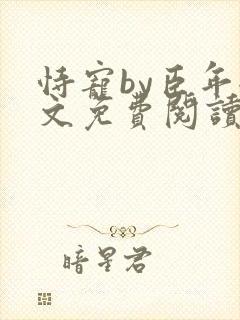 恃寵by臣年
文免費閱讀
暗星君